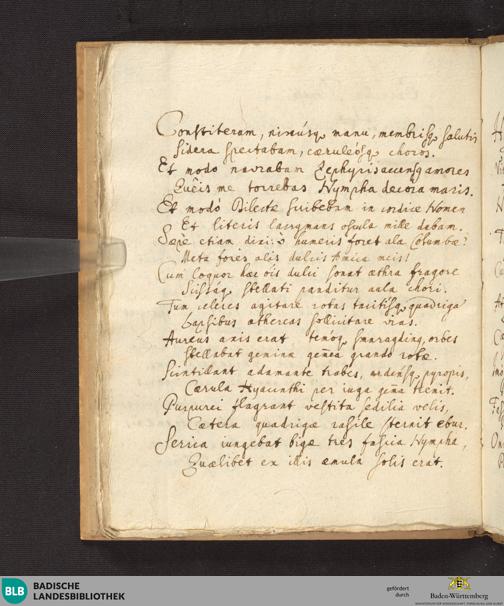 Constiteram, nixusq manu, membrisq solutis
Sidera spectabam, cæruleosq choros.
Et modo narrabam Zephyris accensq amores
Quêis me torrebas Nympha decora maris.
Et modò Dilectæ scribebam in cortice Nomen
Et literis lacrymans oscula mille dabam.
Sæpe etiam dixi: humeris foret ala Columbæ?
Meta fores alis dulcis Amica meis!
Cum loquor hæc dulci sonat æthra fragore
stellati panditur aula chori.
Tum celeres agitare rotas tacitisq quadriga
Lapsibus æthereas sollicitare vias.
Aureus axis erat temoq smaragdinq, orbes
Stellabat gemina gemea grando rotæ.
Scintillant adamante trabes, ardensq pyropis,
Cærula Hyacinthi per iuga gema tremit.
Purpurei flagrant vestita sedilia velis,
Cætera quadrigæ rasile sternit ebur.
Serica iungebat bigæ tres fascia Nymphæ,
Quælibet ex illis æmula solis erat.
BLB
BADISCHE
LANDESBIBLIOTHEK
gefördert
durch
Baden-Württemberg